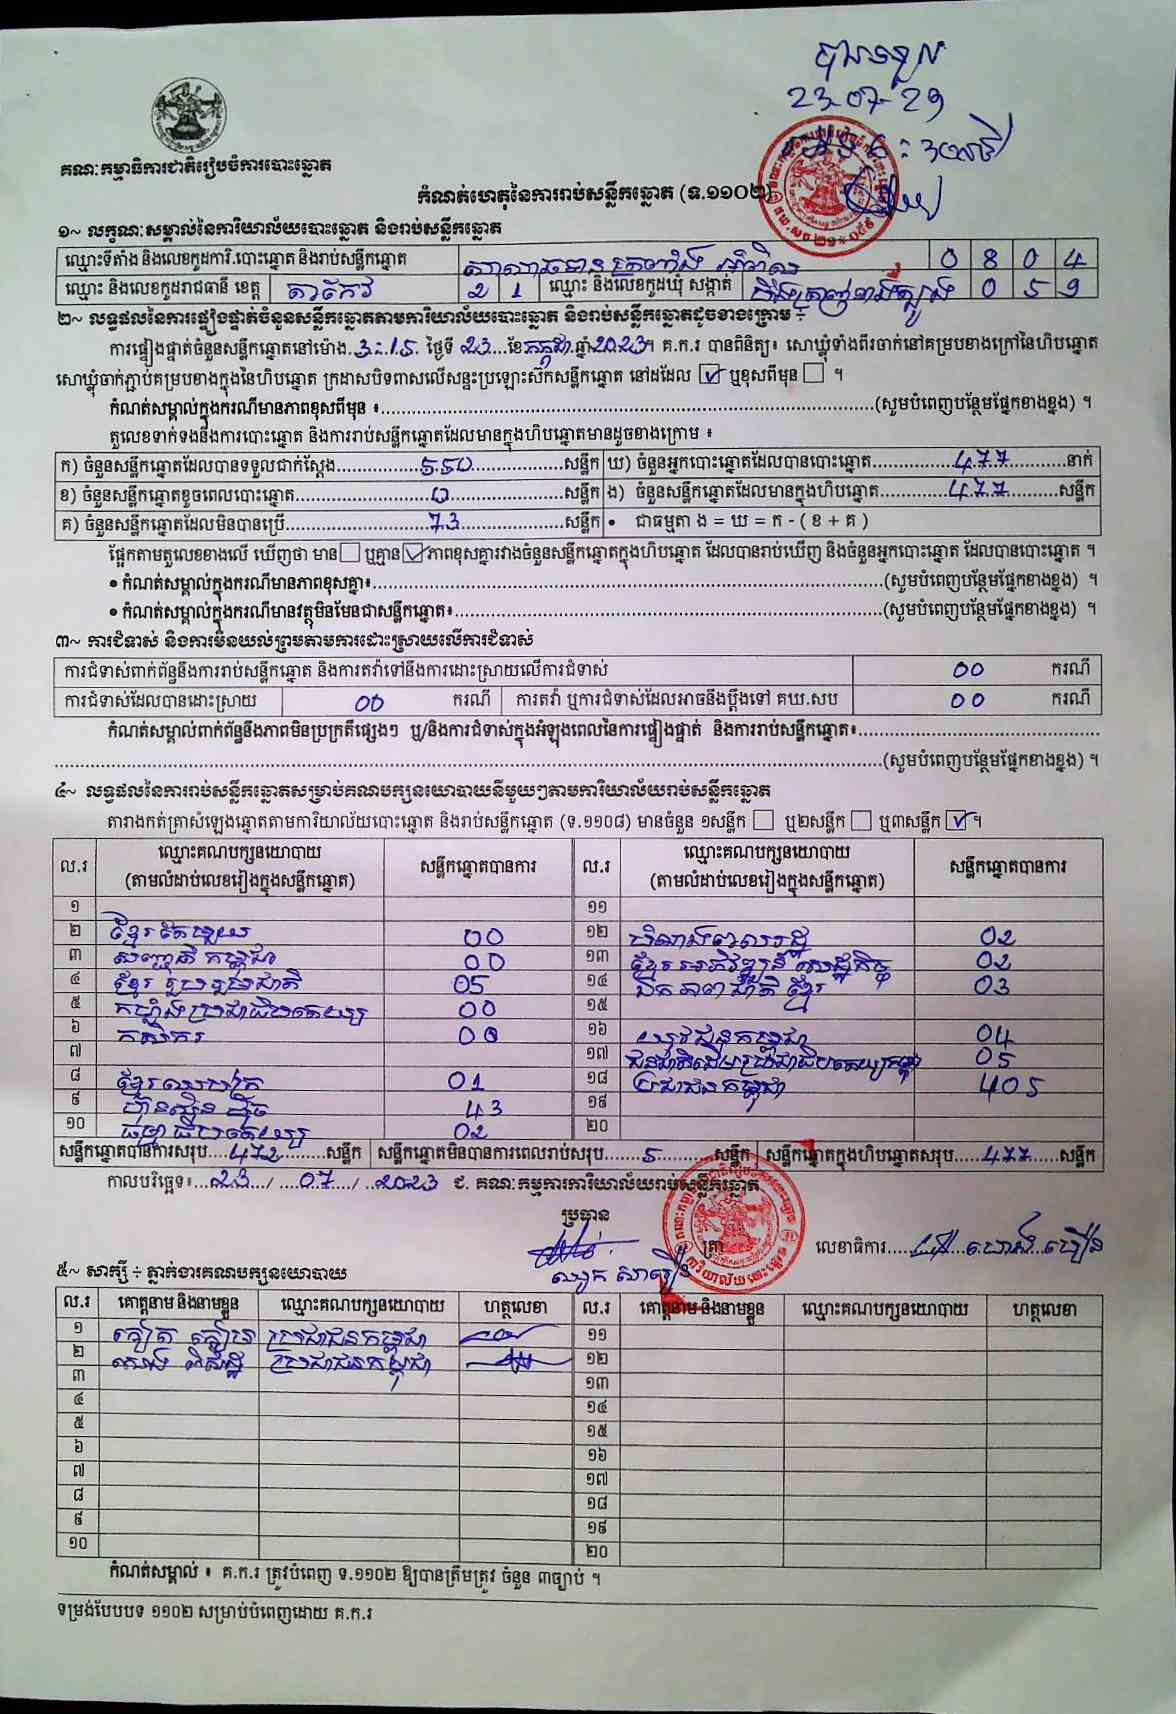 បានទទួល
23-07-29
គណៈកម្មាធិការជាតិរៀបចំការបោះឆ្នោត
កំណត់ហេតុនៃការរាប់សន្លឹកឆ្នោត (ទ.១១០២)
១~ លក្ខណៈសម្គាល់នៃការិយាល័យបោះឆ្នោត និងរាប់សន្លឹកឆ្នោត
ឈ្មោះទីតាំង និងលេខកូដការិ.បោះឆ្នោត និងរាប់សន្លឹកឆ្នោត 0 8 0 4
ឈ្មោះ និងលេខកូដរាជធានី ខេត្ត តាកែវ 2 1 ឈ្មោះ និងលេខកូដឃុំ សង្កាត់ 0 5 9
២~ លទ្ធផលនៃការផ្ទៀងផ្ទាត់ចំនួនសន្លឹកឆ្នោតតាមការិយាល័យបោះឆ្នោត និងរាប់សន្លឹកឆ្នោតដូចខាងក្រោម ÷
ការផ្ទៀងផ្ទាត់ចំនួនសន្លឹកឆ្នោតនៅម៉ោង 3:15 ថ្ងៃទី 23 ខែ កក្កដា ឆ្នាំ 2023 ។ គ.ក.រ បានពិនិត្យ៖ សោឃ្លុំទាំងពីរចាក់នៅគម្របខាងក្រៅនៃហិបឆ្នោត
សោឃ្លុំចាក់ភ្ជាប់គម្របខាងក្នុងនៃហិបឆ្នោត ក្រដាសបិទពាសលើសន្ទះប្រឡោះស៊កសន្លឹកឆ្នោត នៅដដែល ☑ ឬខុសពីមុន ☐ ។
កំណត់សម្គាល់ក្នុងករណីមានភាពខុសពីមុន ៖..........(សូមបំពេញបន្ថែមផ្នែកខាងខ្នង) ។
តួលេខទាក់ទងនឹងការបោះឆ្នោត និងការរាប់សន្លឹកឆ្នោតដែលមានក្នុងហិបឆ្នោតមានដូចខាងក្រោម ៖
ក) ចំនួនសន្លឹកឆ្នោតដែលបានទទួលជាក់ស្តែង 550 សន្លឹក ឃ) ចំនួនអ្នកបោះឆ្នោតដែលបានបោះឆ្នោត 477 នាក់
ខ) ចំនួនសន្លឹកឆ្នោតខូចពេលបោះឆ្នោត 0 សន្លឹក ង) ចំនួនសន្លឹកឆ្នោតដែលមានក្នុងហិបឆ្នោត 477 សន្លឹក
គ) ចំនួនសន្លឹកឆ្នោតដែលមិនបានប្រើ 73 សន្លឹក • ជាធម្មតា ង = ឃ = ក - ( ខ + គ )
ផ្អែកតាមតួលេខខាងលើ ឃើញថា មាន ☐ ឬគ្មាន ☑ ភាពខុសគ្នារវាងចំនួនសន្លឹកឆ្នោតក្នុងហិបឆ្នោត ដែលបានរាប់ឃើញ និងចំនួនអ្នកបោះឆ្នោត ដែលបានបោះឆ្នោត ។
• កំណត់សម្គាល់ក្នុងករណីមានភាពខុសគ្នា៖..........(សូមបំពេញបន្ថែមផ្នែកខាងខ្នង) ។
• កំណត់សម្គាល់ក្នុងករណីមានវត្ថុមិនមែនជាសន្លឹកឆ្នោត៖..........(សូមបំពេញបន្ថែមផ្នែកខាងខ្នង) ។
៣~ ការជំទាស់ និងការមិនយល់ព្រមតាមការដោះស្រាយលើការជំទាស់
ការជំទាស់ពាក់ព័ន្ធនឹងការរាប់សន្លឹកឆ្នោត និងការតវ៉ាទៅនឹងការដោះស្រាយលើការជំទាស់ 00 ករណី
ការជំទាស់ដែលបានដោះស្រាយ 00 ករណី ការតវ៉ា ឬការជំទាស់ដែលអាចនឹងប្តឹងទៅ គឃ.សប 00 ករណី
កំណត់សម្គាល់ពាក់ព័ន្ធនឹងភាពមិនប្រក្រតីផ្សេងៗ ឬ/និងការជំទាស់ក្នុងអំឡុងពេលនៃការផ្ទៀងផ្ទាត់ និងការរាប់សន្លឹកឆ្នោត៖..........
..........(សូមបំពេញបន្ថែមផ្នែកខាងខ្នង) ។
៤~ លទ្ធផលនៃការរាប់សន្លឹកឆ្នោតសម្រាប់គណបក្សនយោបាយនីមួយៗតាមការិយាល័យរាប់សន្លឹកឆ្នោត
តារាងកត់ត្រាសំឡេងឆ្នោតតាមការិយាល័យបោះឆ្នោត និងរាប់សន្លឹកឆ្នោត (ទ.១១០៨) មានចំនួន ១សន្លឹក ☐ ឬ២សន្លឹក ☐ ឬ៣សន្លឹក ☑ ។
ល.រ ឈ្មោះគណបក្សនយោបាយ (តាមលំដាប់លេខរៀងក្នុងសន្លឹកឆ្នោត) សន្លឹកឆ្នោតបានការ ល.រ ឈ្មោះគណបក្សនយោបាយ (តាមលំដាប់លេខរៀងក្នុងសន្លឹកឆ្នោត) សន្លឹកឆ្នោតបានការ
១ ១១
២ ខ្មែរតែមួយ 00 ១២ 02
៣ សញ្ជាតិកម្ពុជា 00 ១៣ ខ្មែរអភិវឌ្ឍន៍សេដ្ឋកិច្ច 02
៤ ខ្មែររួបរួមជាតិ 05 ១៤ ឯកភាពជាតិខ្មែរ 03
៥ កម្លាំងប្រជាធិបតេយ្យ 00 ១៥
៦ កសិករ 00 ១៦ យុវជនកម្ពុជា 04
៧ ១៧ ជនជាតិដើមប្រជាធិបតេយ្យកម្ពុជា 05
៨ ខ្មែរឈប់ក្រ 01 ១៨ ប្រជាជនកម្ពុជា 405
៩ ហ៊្វុនស៊ិនប៉ិច 43 ១៩
១០ ធម្មាធិបតេយ្យ 02 ២០
សន្លឹកឆ្នោតបានការសរុប 472 សន្លឹក សន្លឹកឆ្នោតមិនបានការពេលរាប់សរុប 5 សន្លឹក សន្លឹកឆ្នោតក្នុងហិបឆ្នោតសរុប 477 សន្លឹក
កាលបរិច្ឆេទ៖ 23 / 07 / 2023 ជ. គណៈកម្មការការិយាល័យរាប់សន្លឹកឆ្នោត
ប្រធាន
ត្រា លេខាធិការ
៥~ សាក្សី ÷ ភ្នាក់ងារគណបក្សនយោបាយ
ល.រ គោត្តនាម និងនាមខ្លួន ឈ្មោះគណបក្សនយោបាយ ហត្ថលេខា ល.រ គោត្តនាម និងនាមខ្លួន ឈ្មោះគណបក្សនយោបាយ ហត្ថលេខា
១ ប្រជាជនកម្ពុជា ១១
២ ប្រជាជនកម្ពុជា ១២
៣ ១៣
៤ ១៤
៥ ១៥
៦ ១៦
៧ ១៧
៨ ១៨
៩ ១៩
១០ ២០
កំណត់សម្គាល់ ៖ គ.ក.រ ត្រូវបំពេញ ទ.១១០២ ឱ្យបានត្រឹមត្រូវ ចំនួន ៣ច្បាប់ ។
ទម្រង់បែបបទ ១១០២ សម្រាប់បំពេញដោយ គ.ក.រ